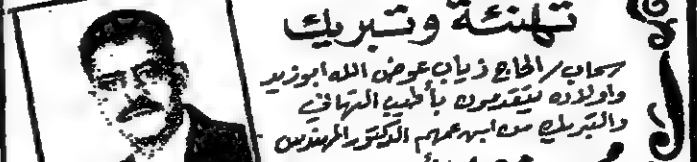 تهنئة وتبريك
سحاب / الحاج ذياب عوض الله ابوزيد
واولاده يتقدمون بأطيب التهاني
والتبريك من ابن عمهم الدكتور المهندس